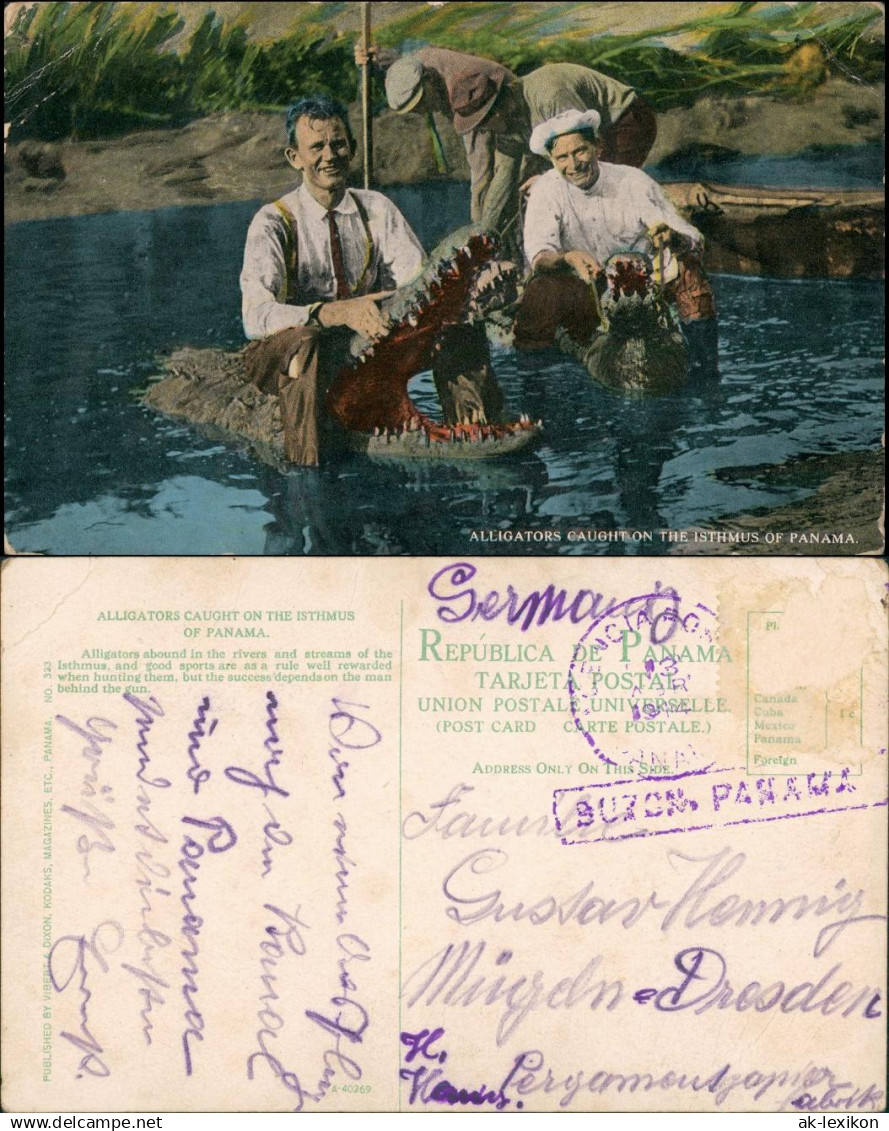 ALLIGATORS CAUGHT ON THE ISTHMUS OF PANAMA.
ALLIGATORS CAUGHT ON THE ISTHMUS
OF PANAMA.
Alligators abound in the rivers and streams of the
Isthmus, and good sports are as a rule well rewarded
when hunting them, but the success depends on the man
behind the gun.
PUBLISHED BY VIBERT & DIXON, KODAKS, MAGAZINES, ETC., PANAMA. NO. 323
auf den Kanal
und Panama
Grüße
Germany
REPÚBLICA DE PANAMA
TARJETA POSTAL
UNION POSTALE UNIVERSELLE.
(POST CARD CARTE POSTALE.)
ADDRESS ONLY ON THIS SIDE.
Pl.
Canada
Cuba
Mexico
Panama
1c
Foreign
1914
BUZON, PANAMA
Familie
Gustav Hennig
Mügeln-Dresden
H.
Pergamentpapier
fabrik
A-40269
www.delcampe.net
ak-lexikon